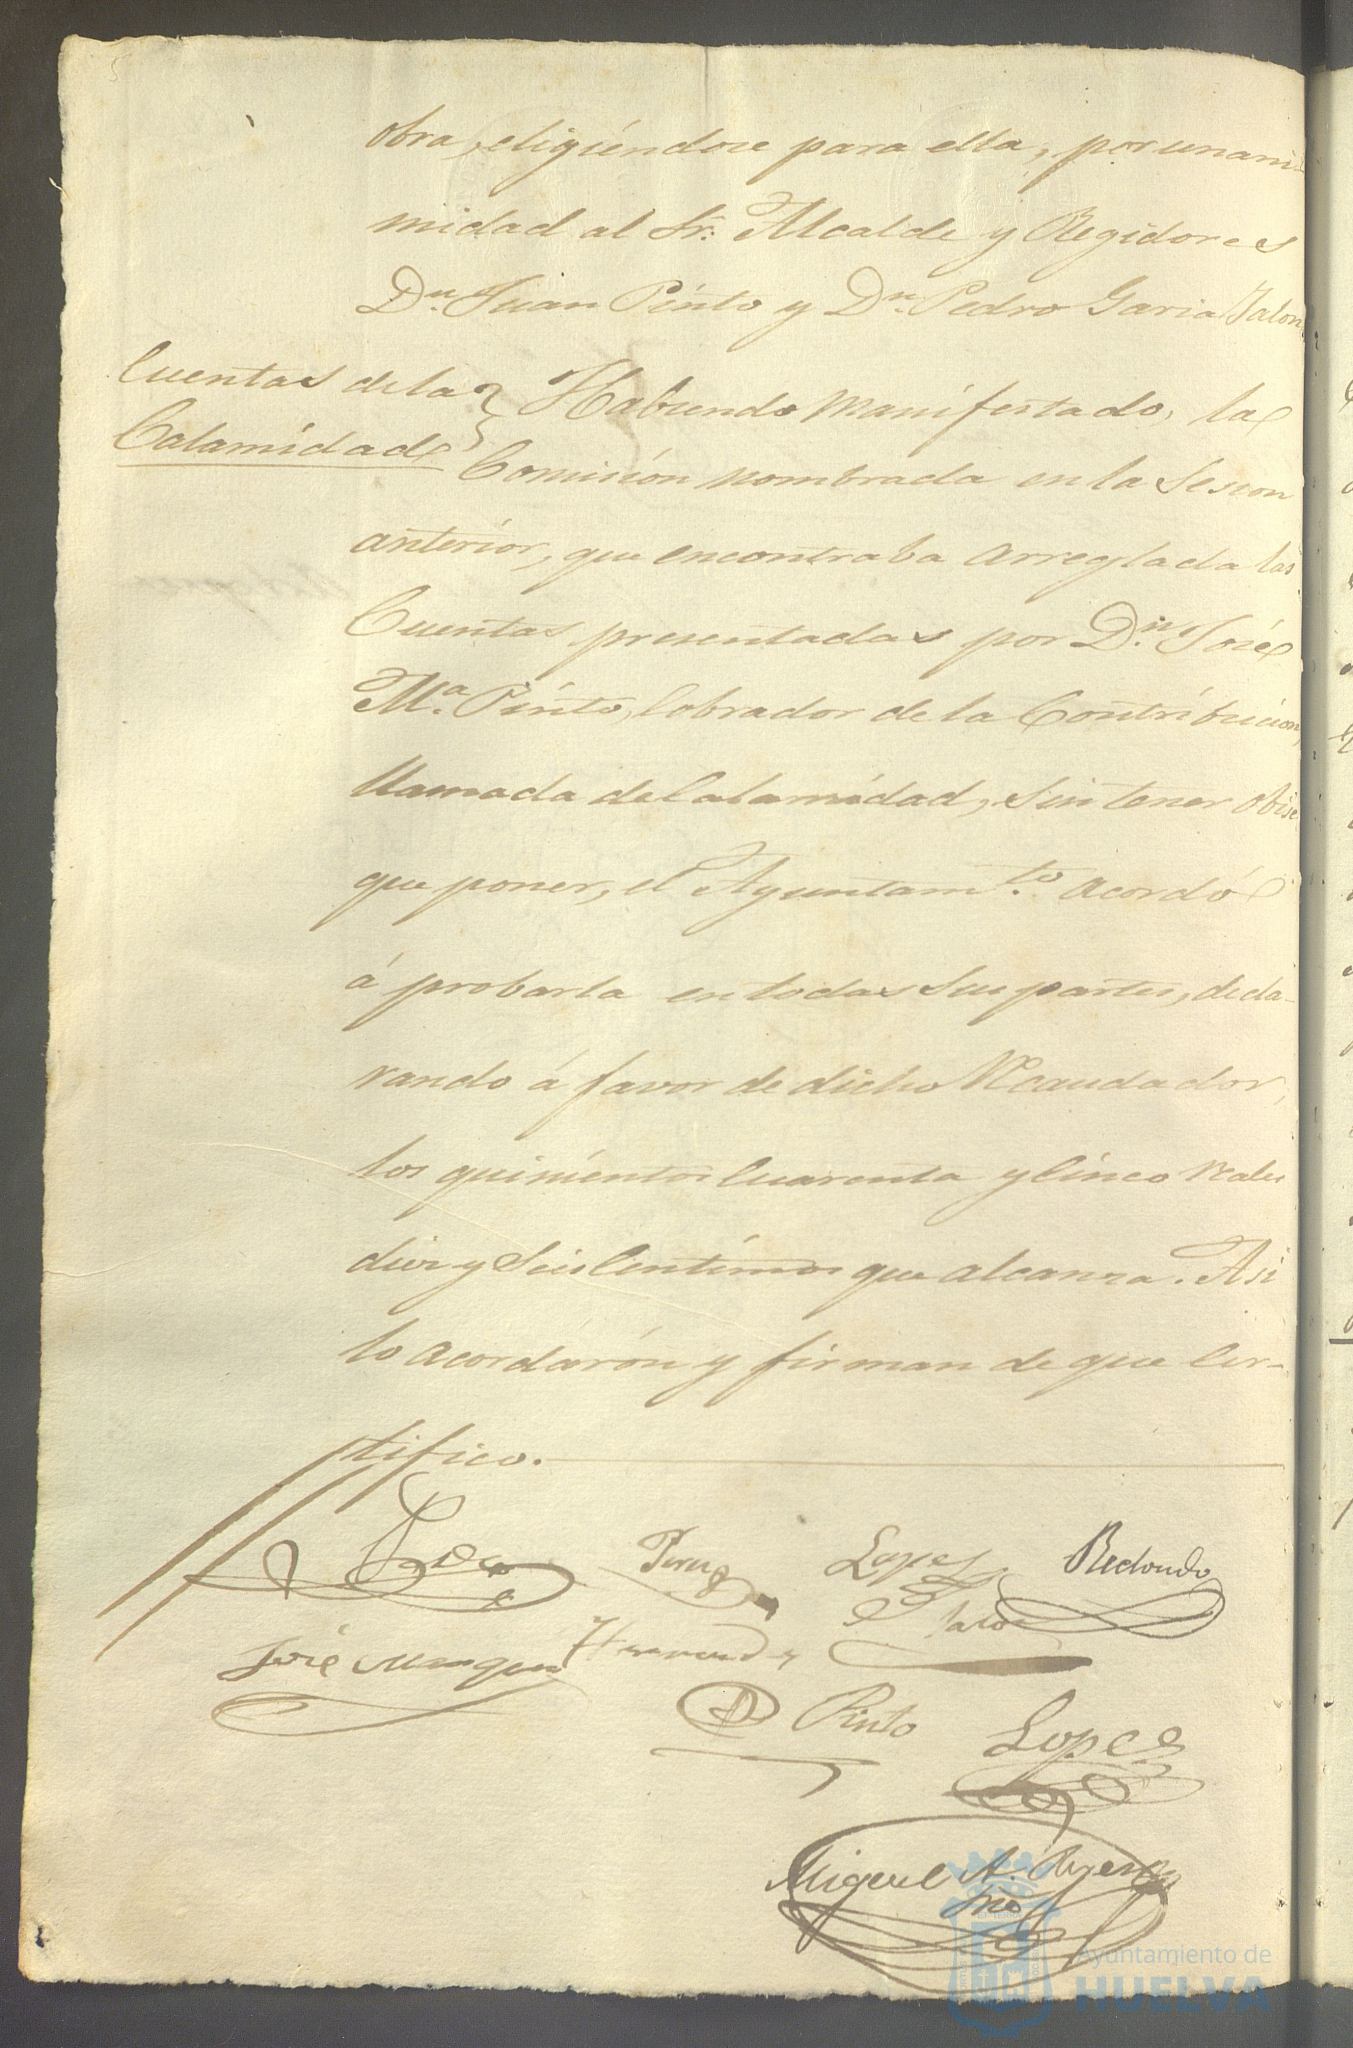 obra, eligiéndose para ella, por unani-
midad al Sr. Alcalde y Regidores
Dn. Juan Pinto y Dn. Pedro Garia Jalon,
Cuentas de la
Calamidad
Habiendo manifestado, la
Comisión nombrada en la Sesion
anterior, que encontraba arreglada las
Cuentas presentadas por Dn. José
Ma. Pinto, Cobrador de la Contribución,
llamada de Calamidad, sin tener
que poner, el Ayuntamto. acordó
á probarla en todas sus partes, decla-
rando á favor de dicho Recaudador,
los quinientos Cuarenta y Cinco reales
diez y Seis Centimos que alcanza. Asi
lo acordarón y firman de que Cer-
tifico.
Lopez Redondo
Jalon
José Marquez
Pinto Lopez
Miguel A.
Srio
Ayuntamiento de
HUELVA